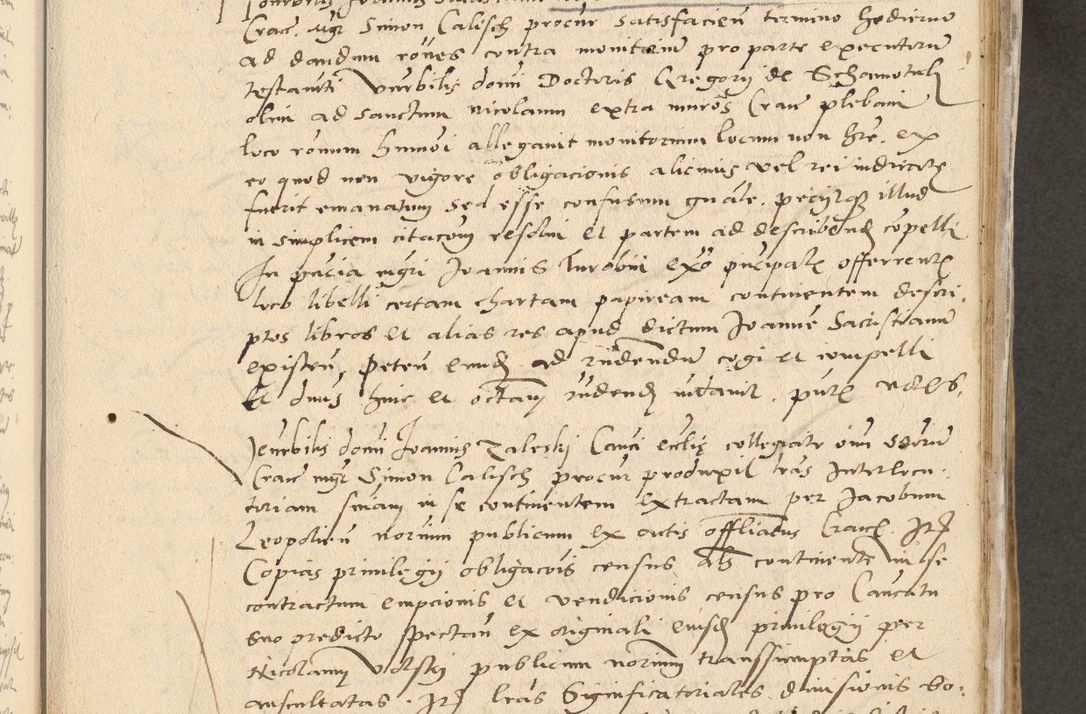 Crac. mgr Simon Calisch procur satisfacien termino hodierno
ad dandum rones contra monitorium pro parte executorum
testamti Venrbilis domi Doctoris Gregorij de Schamotuli
olim ad sanctum Nicolaum extra muros Crac plebani
loco ronum hmmoi allegavit monitorium locum non hre. ex
eo quod non vigore obligacionis alicuius vel rei iudicate
fuerit emanatum sed esse confusum gnale. pecijtque illud
in simplicem citacom resolui et partem ad describend copelli
In pncia mgri Joannis Turobin exo pncipale offerrente
loco libelli certam chartam papiream continentem descri,
ptos libros et alias res apud dictum Joanne Sacristianum
existen, peten eund ad rndendum cogi et compelli
Et dnus hinc et octam rndend mdavit. pnte notis.
Venrbilis domi Joannis Zaleski Canci ecclie collegiate oim Storum
Crac mgr Simon Calisch procur produxit lras Interlocu,
toriam sniam in se continentem extractam per Jacobum
Leopolien norium publicum ex actis offliatus Cracoe. Itm
Copias privilegij obligacois census als continente in se
contractum empcionis et vendicionis census pro Cancatu
suo predicto spectan ex originali eiusd privilegij per
Nicolaum Volski publicum norium transsumptas et
auscultatas. Itm lras Significatoriales divisionis bo,